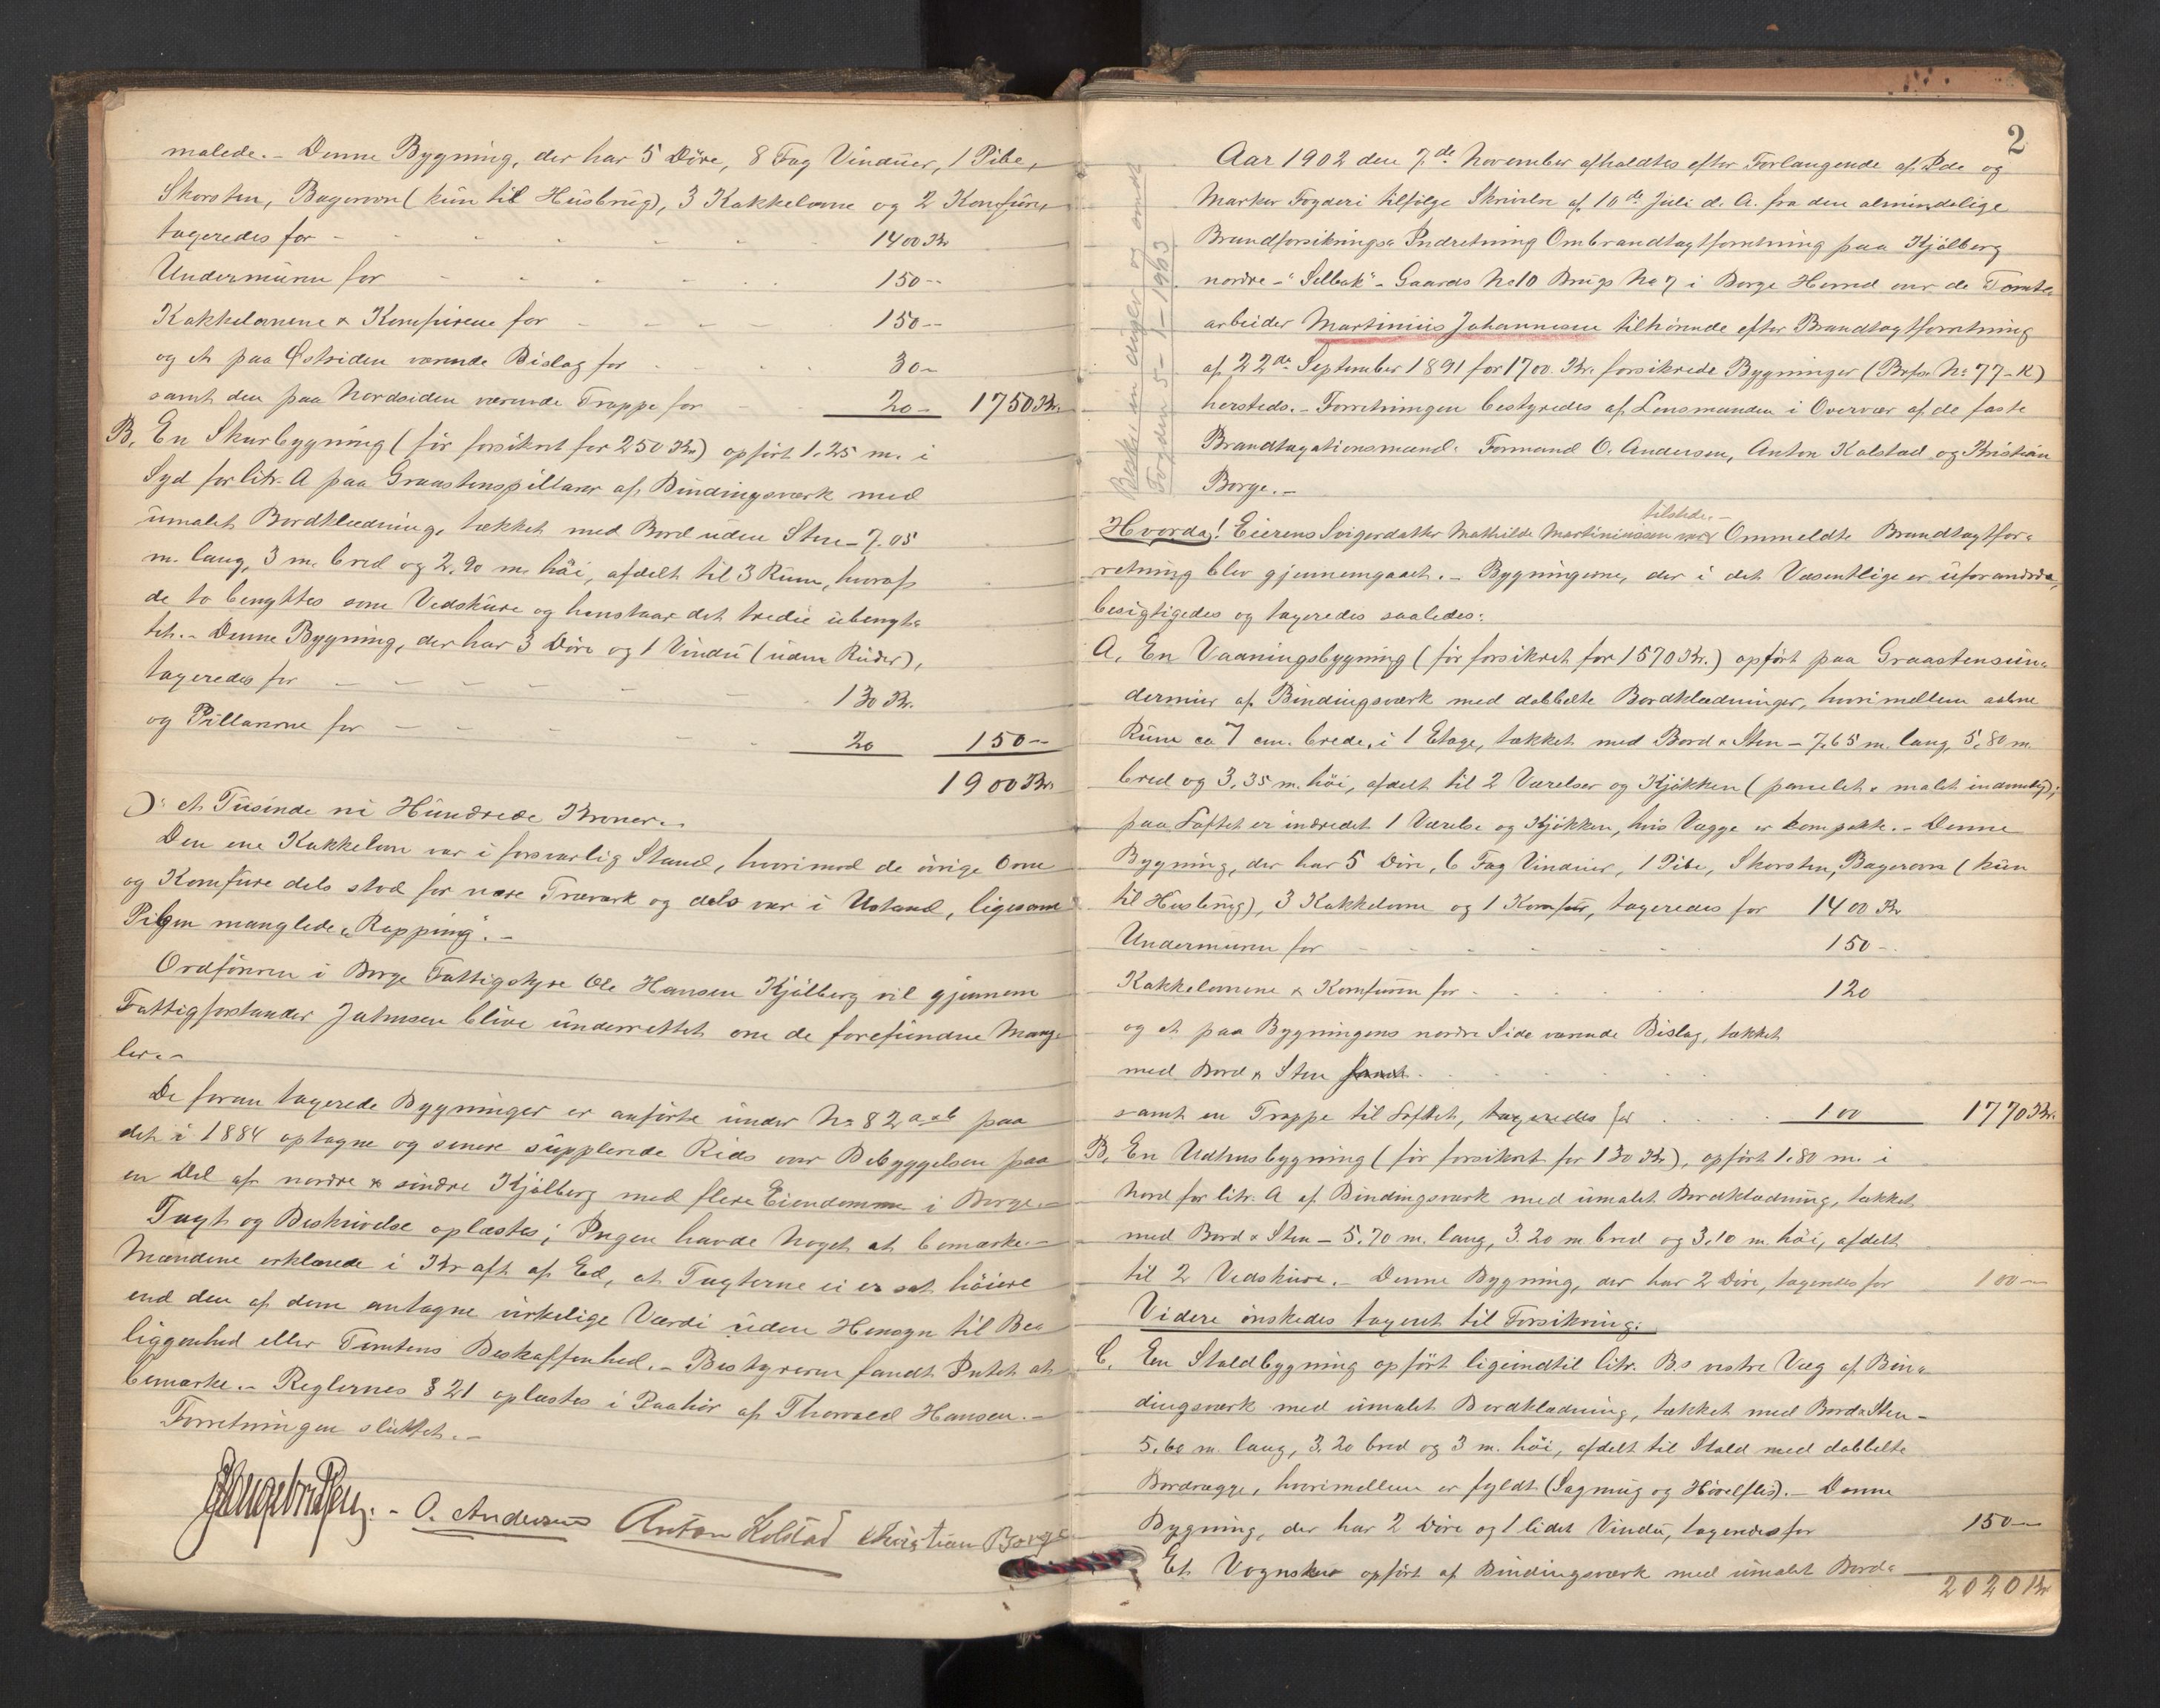 malede. - Denne Bygning, der har 5 Döre, 8 Fag Vinduer, 1 Pibe,
Skorsten, Bagerovn (kun til Husbrug), 3 Kakkelovne og 2 Komfure,
taxeredes for - - - - - - 1400 Kr
Undermuren for - - - - - 150 -
Kakkelovnene & Komfurene for - - - - 150 -
og et paa Östsiden værende Bislag for - - - 30 -
samt den paa Nordsiden værende Trappe for - - 20 - 1750 Kr.
B, En Skurbygning (för forsikret for 250 Kr) opfört 1.25 m. i
Syd for litr. A paa Graastenspillarer af Bindingsværk med
umalet Bordklædning, tækket med Bord uden Sten - 7.05
m. lang, 3 m. bred og 2.90 m. höi, afdelt til 3 Rum, hvoraf
de to benyttes som Vedskure og henstaar det tredie ubenyt-
tet. - Denne Bygning, der har 3 Döre og 1 Vindu (uden Ruder),
taxeredes for - - - - - - 130 Kr.
og Pillarerne for - - - - - 20 150 -
1900 Kr
ɔ: et Tusinde ni Hundrede Kroner. -
Den ene Kakkelovn var i forsvarlig Stand, hvorimod de övrige Ovne
og Komfure dels stod for nære Træværk og dels var i Ustand, ligesom
Piben manglede "Rapping". -
Ordföreren i Borge Fattigstyre Ole Hansen Kjölberg vil gjennem
Fattigforstander Jahnsen blive underrettet om de forefundne Mang-
ler. -
De foran taxerede Bygninger er anförte under No 82 a & b paa
det i 1884 optagne og senere supplerede Rids over Bebyggelsen paa
en Del af nordre & söndre Kjölberg med flere Eiendomme i Borge. -
Taxt og Beskrivelse oplæstes; Ingen havde Noget at bemærke. -
Mændene erklærede i Kraft af Ed, at Taxterne ei er sat höiere
end den af dem antagne virkelige Værdi uden Hensyn til Be-
liggenhed eller Tomtens Beskaffenhed. - Bestyreren fandt Intet at
bemærke. - Reglernes § 21 oplæstes i Paahör af Thorvald Hansen. -
Forretningen sluttet. -
O. Andersen Anton Kolstad Christian Borge
2
Aar 1902 den 7de November afholdtes efter Forlangende af Ide og
Marker Fogderi tilfölge Skrivelse af 10de Juli d. A. fra den almindelige
Brandforsikrings-Indretning Ombrandtaxtforretning paa Kjölberg
nordre - "Selbak" - Gaards No 10 Brugs No 7 i Borge Herred over de Tomte-
arbeider Martinius Johannesen tilhörende efter Brandtaxtforretning
af 22de September 1891 for 1700 Kr. forsikrede Bygninger (Brfor. No 77-K)
hersteds. - Forretningen bestyredes af Lensmanden i Overvær af de faste
Brandtaxationsmænd: Formand O. Andersen, Anton Kolstad og Kristian
Borge. -
Fogden 5-1-1903
tilstede. -
Hvorda! Eierens Svigerdatter Mathilde Martiniussen var Ommeldte Brandtaxtfor-
retning blev gjennemgaaet. - Bygningerne, der i det Væsentlige er uforandrede,
besigtigedes og taxeredes saaledes:
A, En Vaaningsbygning (för forsikret for 1570 Kr.) opfört paa Graastensun-
dermur af Bindingsværk med dobbelte Bordklædninger, hvorimellem aabne
Rum ca 7 cm. brede, i 1 Etage, tækket med Bord & Sten - 7.65 m. lang, 5.80 m.
bred og 3.35 m. höi, afdelt til 2 Værelser og Kjökken (panelet & malet indvendig);
paa Loftet er indredet 1 Værelse og Kjökken, hvis Vægge er kompakte. - Denne
Bygning, der har 5 Döre, 6 Fag Vinduer, 1 Pibe, Skorsten, Bagerovn (kun
til Husbrug), 3 Kakkelovne og 1 Komfur, taxeredes for 1400 Kr
Undermuren for - - - - - 150 -
Kakkelovnene & Komfuren for - - - - 120
og et paa Bygningens nordre Side værende Bislag, tækket
med Bord & Sten samt
samt en Trappe til Loftet, taxeredes for - - - 100 1770 Kr.
B, En Udhusbygning (för forsikret for 130 Kr), opfört 1.80 m. i
Nord for litr. A af Bindingsværk med umalet Bordklædning, tækket
med Bord & Sten - 5.70 m. lang, 3.20 m bred og 3.10 m. höi, afdelt
til 2 Vedskure. - Denne Bygning, der har 2 Döre, taxeredes for 100 -
Videre önskedes taxeret til Forsikring:
C, En Staldbygning opfört ligeindtil litr. B.s vestre Væg af Bin-
dingsværk med umalet Bordklædning, tækket med Bord & Sten -
5.60 m. lang, 3.20 bred og 3 m. höi, afdelt til Stald med dobbelte
Bordvægge, hvorimellem er fyldt (Sagmug og Hövelflis). - Denne
Bygning, der har 2 Döre og 1 lidet Vindu, taxeredes for 150 -
Et Vognskur opfört af Bindingsværk med umalet Bord-
2020 Kr